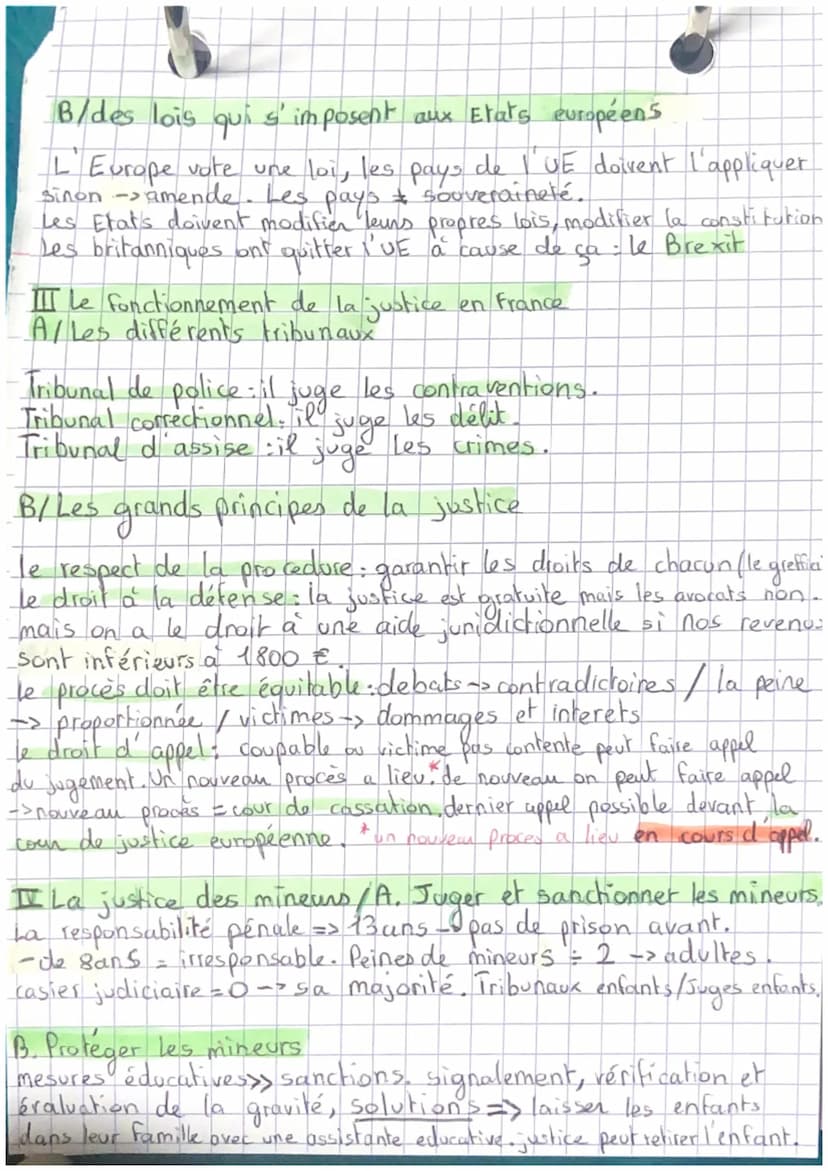 B/des lois qui s'imposent aux Etats européens
L'Europe vote une loi, les pays de l'UE doivent l'appliquer
sinon -> amende. Les pays ≠ souveraineté.
Les Etats doivent modifier leurs propres lois, modifier la constitution
Les britanniques ont quitter l'UE à cause de ça : le Brexit
III Le fonctionnement de la justice en France
A/ Les différents tribunaux
Tribunal de police : il juge les contraventions.
Tribunal correctionnel : il juge les délit.
Tribunal d'assise : il juge les crimes.
B/ Les grands principes de la justice
le respect de la procedure : garantir les droits de chacun (le greffier
Le droit à la défense : la justice est gratuite mais les avocats non.
mais on a le droit à une aide juridictionnelle si nos revenus
sont inférieurs à 1800 €.
Le procès doit être équitable : debats -> contradictoires / la peine
-> proportionnée / victimes -> dommages et interets
le droit d'appel : coupable ou victime pas contente peut faire appel
du jugement. Un nouveau procès a lieu.* de nouveau on peut faire appel
-> nouveau procès = cour de cassation. dernier appel possible devant la
cour de justice européenne. *un nouveau proces a lieu en cours d'appel.
IV La justice des mineurs / A. Juger et sanctionner les mineurs.
La responsabilité pénale => 13 ans -> pas de prison avant.
- de 8 ans = irresponsable. Peines de mineurs ÷ 2 -> adultes.
casier judiciaire = 0 -> sa majorité. Tribunaux enfants/Juges enfants.
B. Protéger les mineurs
mesures éducatives >> sanctions. signalement, vérification et
évaluation de la gravité, solutions => laisser les enfants
dans leur famille avec une assistante educative. justice peut retirer l'enfant.